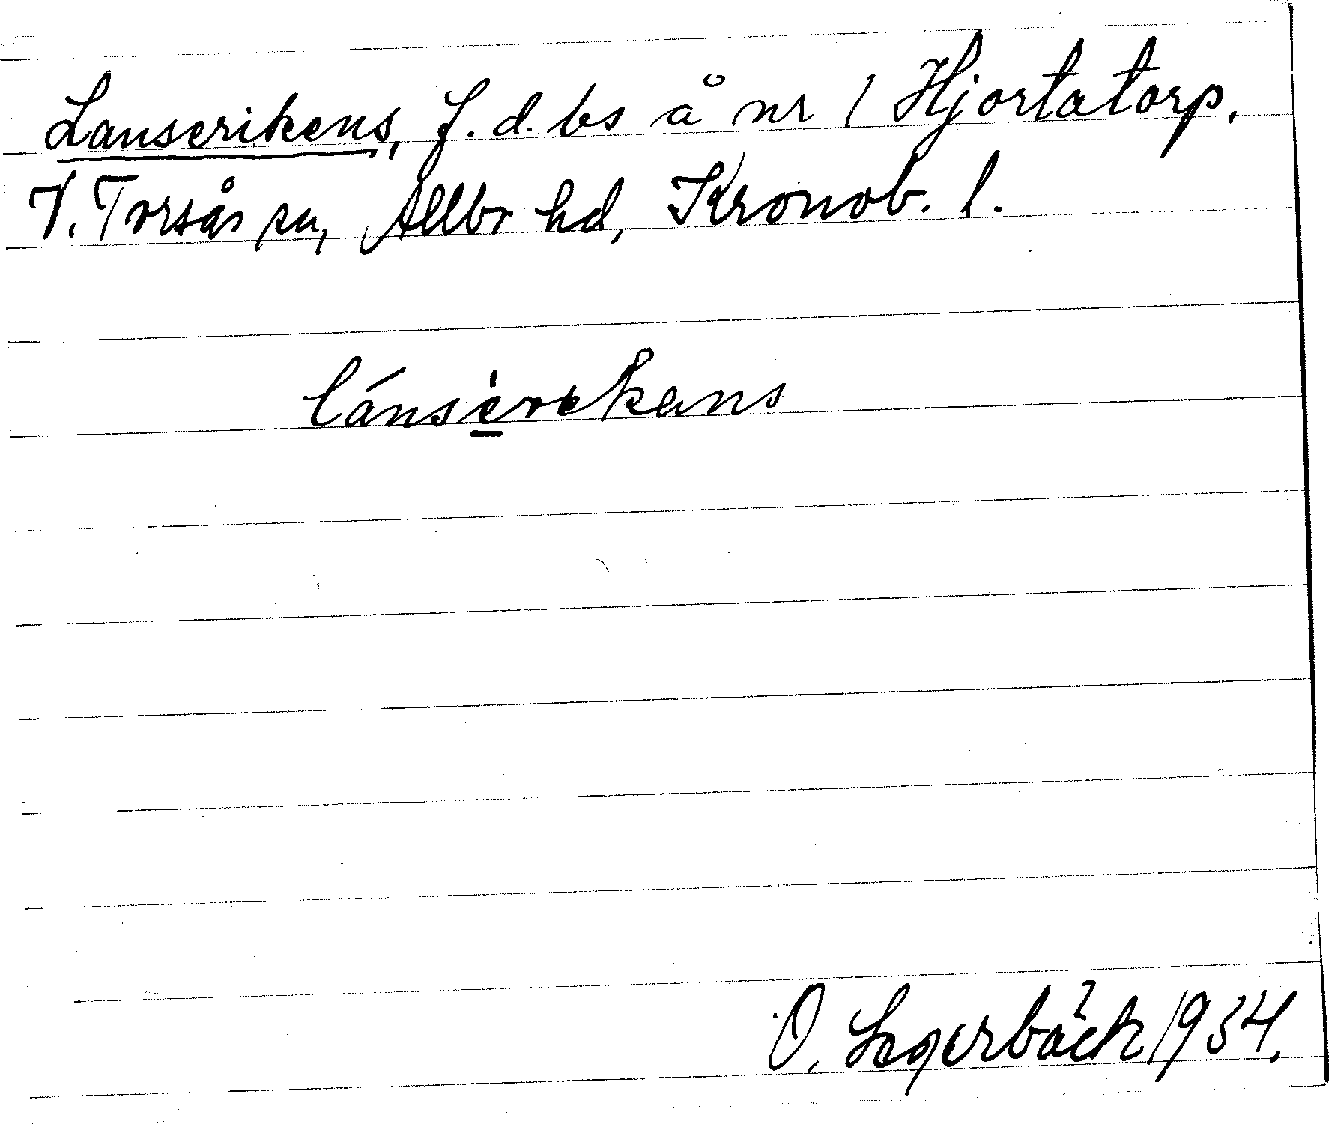 Lanserikens, f.d. bs å nr 1 Hjortatorp.
V. Torsås sn, Allbo hd, Kronob. l.
lánsèrekans
O. Lagerbäck 1934.